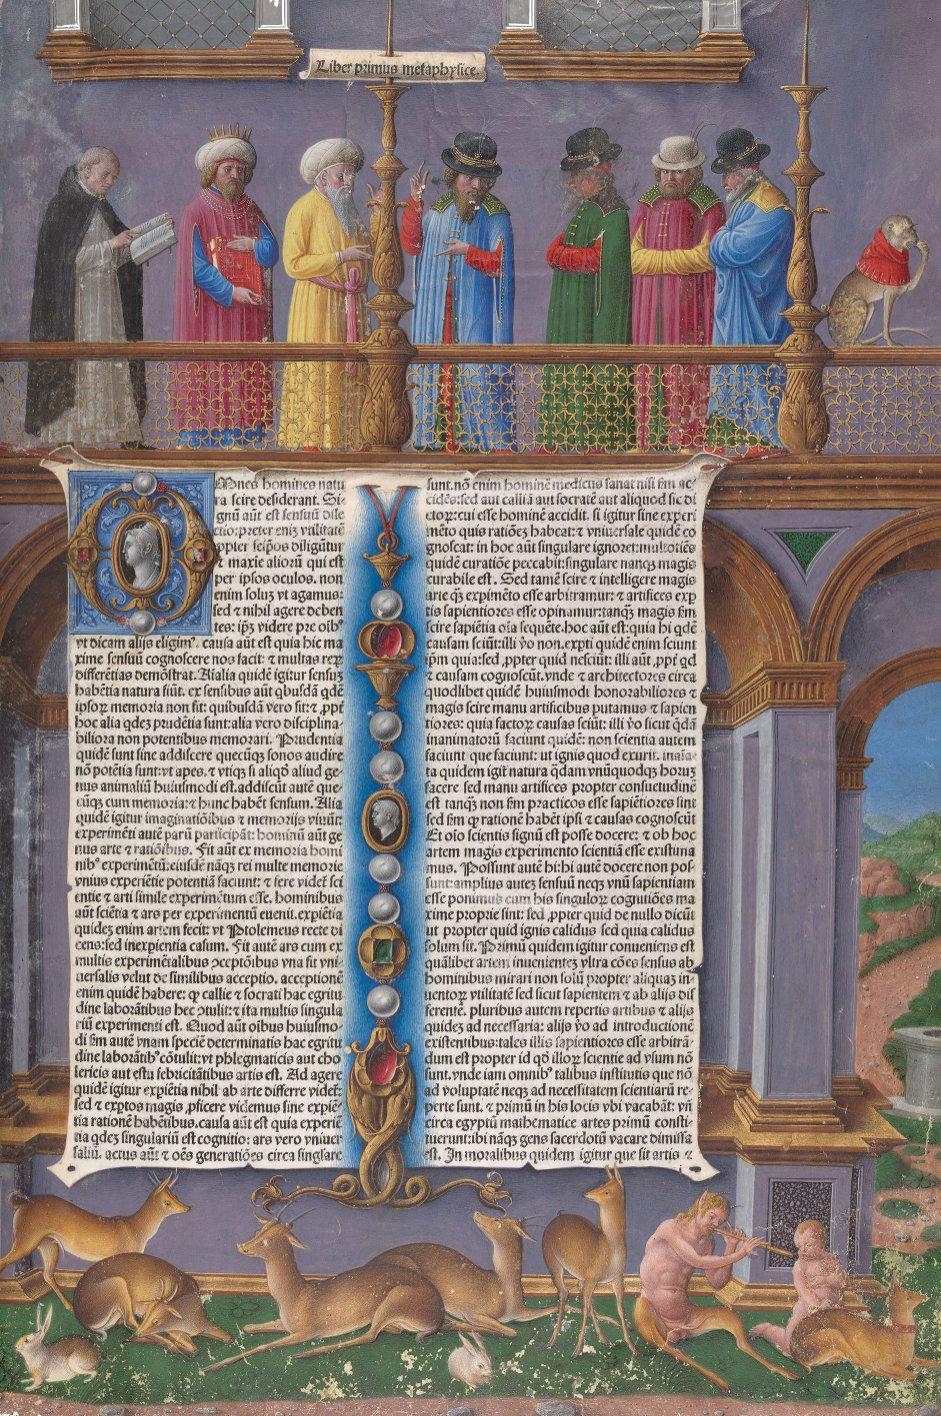 Liber primus metaphysice.
Omnes homines natu
ra scire desiderant. Si-
gnũ aũt est sensuũ dile
ctio: preter eniʒ vtilitatẽ
ꝓpter seip̃os diligũtur
⁊ maxie aliorũ qui est
per ipsos oculos. non
enim soluʒ vt agamus:
sed ⁊ nihil agere deben
tes: ip̃ʒ videre pre oĩbꝰ
vt dicam alijs eligimꝰ. causa aũt est quia hic ma
xime sensuũ cognoscere nos facit: ⁊ multas reꝝ
differẽtias demõstrat. Aĩalia quidẽ igitur sensuʒ
habẽtia natura fiũt. ex sensibus aũt qbusdã qdẽ
ipsoꝝ memoria non fit: quibusdã vero fit: ⁊ ꝓpt̃
hoc alia qdeʒ prudẽtia sunt: alia vero disciplina-
biliora non potentibus memorari. Prudentia
quidẽ sunt sine addiscere quecũqʒ sonos audire
nõ potẽtia sunt: vt apes. ⁊ vtiqʒ si aliqð aliud ge-
nus animaliũ huiusmodi est. addiscũt autẽ que-
cũqʒ cum memoria: ⁊ hunc habẽt sensum. Alia
quidẽ igitur imaginatiõibus ⁊ memorijs viuũt:
experimẽti autẽ parũ participãt: hominũ aũt ge
nus arte ⁊ ratiõibus. Fit aũt ex memoria homi
nibꝰ experimẽtũ: eiusdẽ nãqʒ rei multe memorie
vnius experiẽtie potentiã faciunt: ⁊ fere videt̃ sci
entie ⁊ arti simile experimẽtum esse. hominibus
aũt sciẽtia ⁊ ars per experimentũ euenit. expiẽtia
quideʒ enim artem fecit: vt Ptolemeus recte di
cens: sed inexpientia casum. Fit autẽ ars cum ex
multis experimẽtalibus ꝯceptõibus vna fit vni-
uersalis velut de similibus acceptio. acceptionẽ
enim quidẽ habere: ꝙ callie ⁊ socrati hac egritu
dine laborãtibus hec ꝯtulit: ⁊ ita multis singula
riũ experimenti est. Quod aũt oĩbus huiusmo-
di ẽm autem vnam speciẽ determinatis hac egritu
dine laborãtibꝰ cõtulit: vt phlegmaticis aut cho
lericis aut estu febricitãtibus artis est. Ad agere
quidẽ igitur expiẽtia nihil ab arte differre videt̃:
sed ⁊ exptos magis ꝓficere videmus sine expiẽ-
tia rationẽ habẽtibus. causa aũt est quia experiẽ
tia qdeʒ singulariũ est cognitio: ars vero vniuer
saliũ. actus aũt ⁊ oẽs generatiões circa singlare
sunt. nõ enim hominẽ medicus sanat nisi ẽm ac-
cidẽs: sed aut calliã aut socratẽ aut aliquod sic di
ctoꝝ: cui esse hominẽ accidit. si igitur sine experi
mẽto quis ratiõeʒ habeat: ⁊ vniuersale quidẽ co
gnoscat: in hoc aũt singulare ignoret: multotiẽs
quidẽ curatiõe peccabit: singulare nanqʒ magis
curabile est. Sed tamẽ scire ⁊ intelligere magis
arte qʒ expimẽto esse arbitramur: ⁊ artifices exp
tis sapientiores esse opinamur: tanqʒ magis ẽm
scire sapiẽtia oĩa sequẽte. hoc aũt est: quia hi qdẽ
causam sciũt: illi ṽo non. expti quidẽ enim sciunt
ip̃m quia: sed ꝓpter quid nesciũt: illi aũt ꝓpt̃ qd
⁊ causam cognoscũt. vnde ⁊ architectores circa
quodlibet quidẽ huiusmodi honorabiliores ⁊
magis scire manu artificibus putamus ⁊ sapien
tiores: quia factoꝝ causas sciũt: illi ṽo sicut qdã
inanimatorũ faciunt quidẽ: non scientia autem
faciunt que faciunt: ut ignis quod exurit. inaĩa-
ta quidem igit̃ natura qdam vnũquodqʒ horuʒ
facere sed manu artifices propter consuetudinẽ
est tanqʒ non ẽm practicos esse sapiẽtiores sint
sed ẽm ꝙ rationẽ habẽt ip̃i ⁊ causas cognoscũt
Et oĩo scientis signũ est posse docere: ⁊ ob hoc
artem magis experimento scientiã esse existima
mus. Possunt autẽ hi: hi autẽ docere non pos-
sunt: amplius auteʒ sensuũ neqʒ vnũ sapientiam
esse ponimus cum his singuloꝝ cognitiões ma
xime proprie sint: sed ꝓpter quid de nullo dicũt
ut propter quid ignis calidus sed quia calidus
solum sit. Primũ quidem igitur conueniens est
quãlibet artem inuenientẽ vltra cões sensus ab
hominibus mirari non solũ propter aliquaʒ in-
uentoꝝ vtilitatẽ sed sicut sapientem ⁊ ab alijs dif
ferentẽ. pluribus autem repertis artibus ⁊ alijs
quideʒ ad necessaria: alijs ṽo ad introductionẽ
existentibus: tales illis sapientiores esse arbitrã-
dum est propter id qð illoꝝ scientie ad vsum nõ
sunt. vnde iam omnibꝰ talibus institutis que nõ
ad voluptatẽ neqʒ ad necessitatem scientiarũ re-
perte sunt. ⁊ primũ in his locis vbi vacabãt: vñ
circa egyptũ mathematice artes primũ consti-
tuerunt: ibi nãqʒ gens sacerdotũ vacare dimissa
est. In moralibus quidem igitur que sit artis ⁊